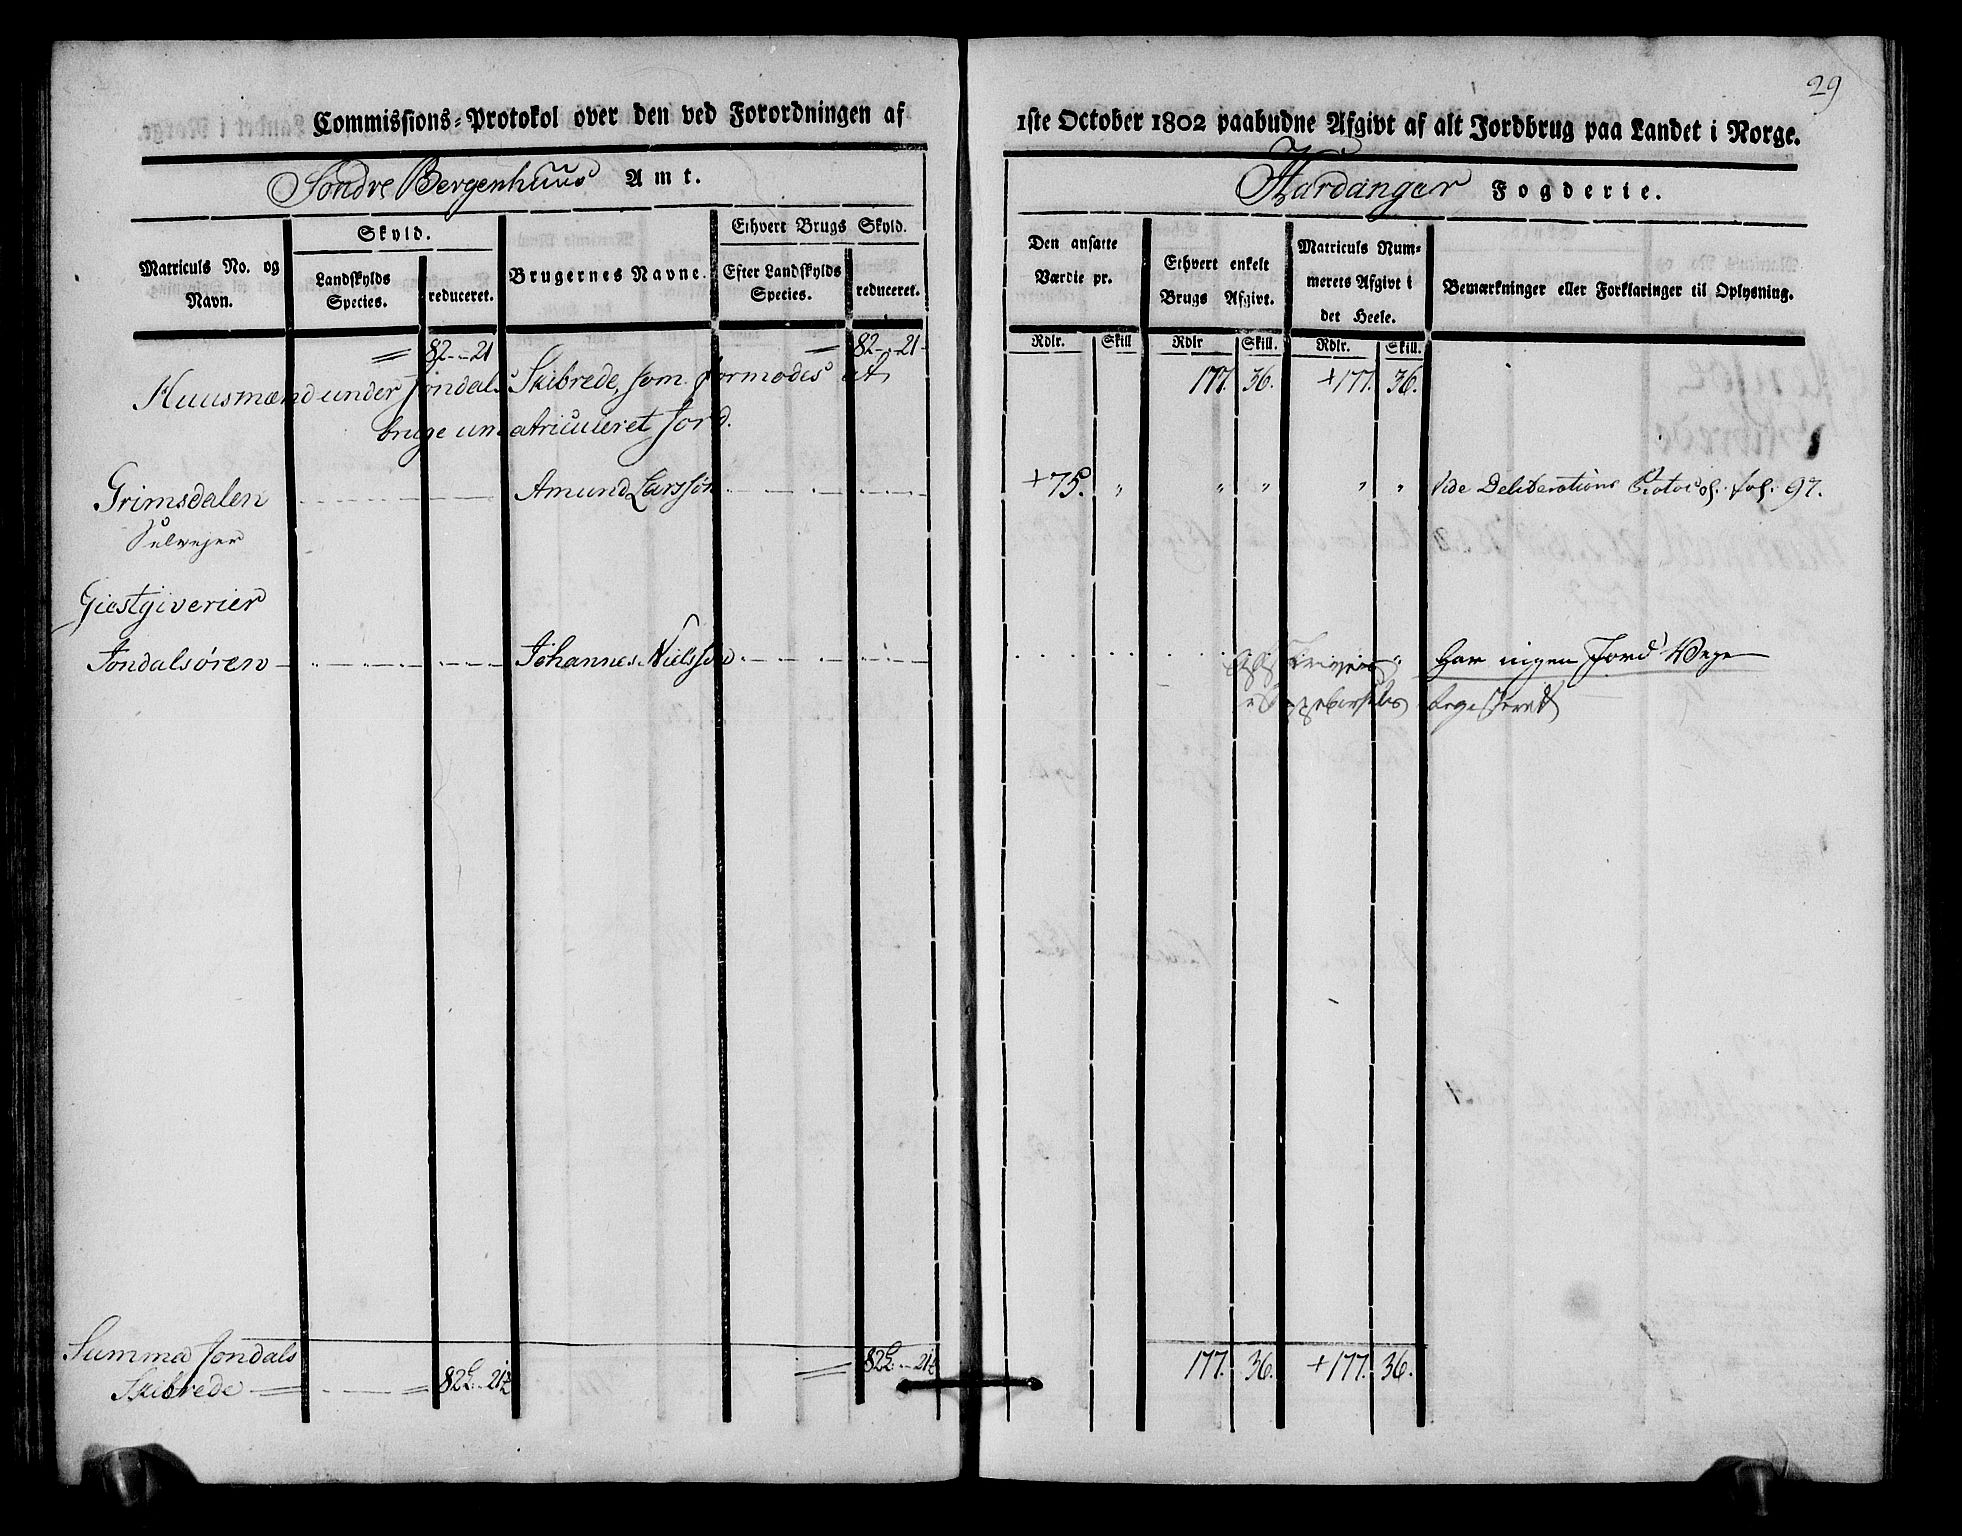 29
Commissions-Protokol over den ved Forordningen af 1ste October 1802 paabudne Afgivt af alt Jordbrug paa Landet i Norge.
Søndre Bergenhuus Amt. Hardanger Fogderie.
Matriculs No. og Navn.
Skyld.
Landskylds Species.
reduceret.
Brugernes Navne.
Ethvert Brugs Skyld.
Efter Landskylds Species.
reduceret.
Den ansatte Værdie pr.
Ethvert enkelt Brugs Afgivt.
Matriculs Nummerets Afgivt i det Heele.
Bemærkninger eller Forklaringer til Oplysning.
Rdlr. Skill Rdlr Skill. Rdlr. Skill.
82 - 21 82 - 21
Huusmænd under Jondals Skibrede, som formodes at 177. 36. +177. 36.
bruge umatriculeret Jord.
Grimsdalen Amund Larssøn +75. " " " " " Vide Deliberations Protocol. fol. 97.
Selvejer
Giestgiverier
Jondalsøren Johannes Nielssøn har ingen Jord
Summa Jondals
Skibrede 82 - 21½ 82 - 21½ 177. 36. +177. 36.